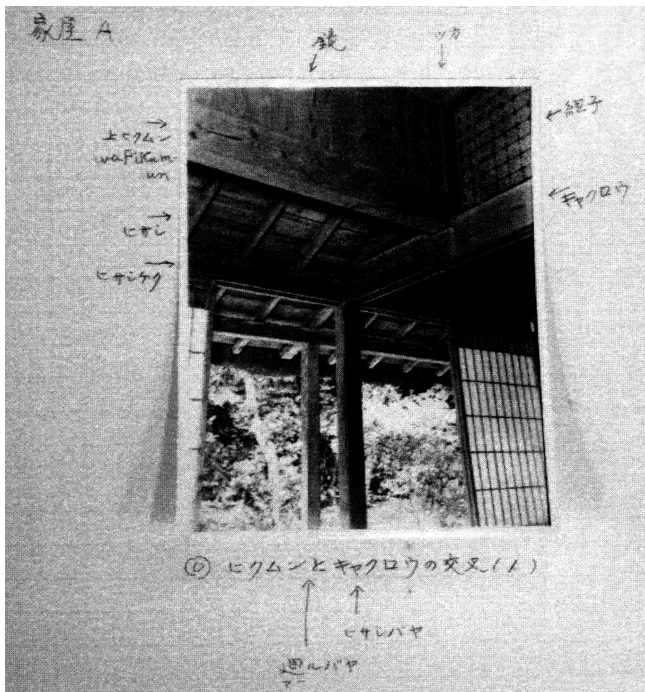 家屋 A
鏡
ツカ
上ヒクムン
waFikum
un
ヒサシ
ヒサシゲタ
組子
キャクロウ
⑥ ヒクムンとキャクロウの交叉(1)
ヒサシバヤ
廻ルバヤ